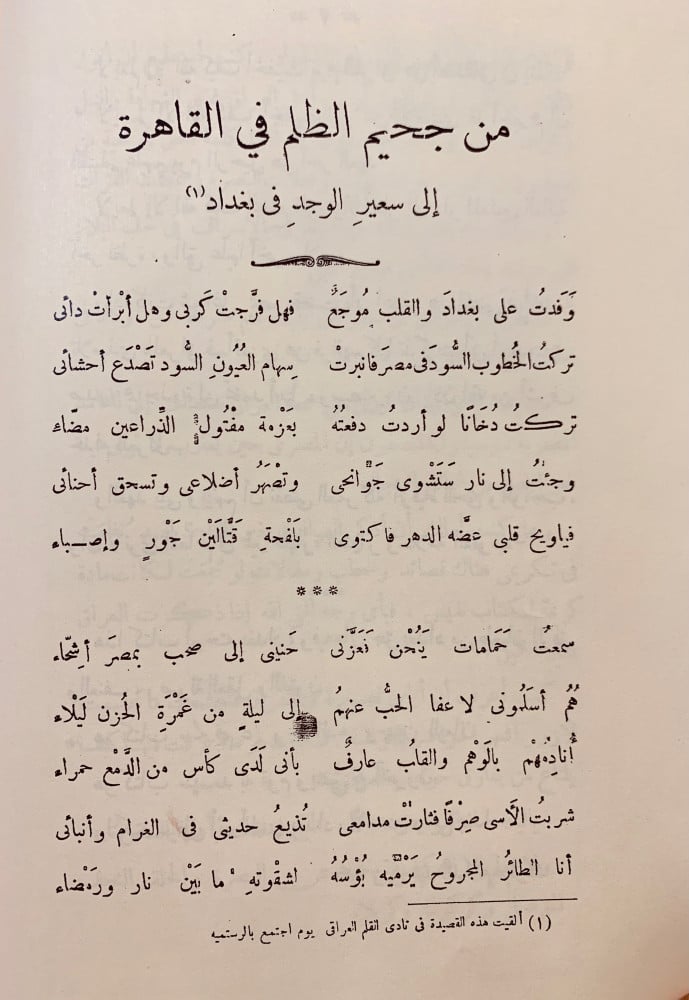 من جحيم الظلم في القاهرة
إلى سعيرِ الوجدِ فى بغداد (١)
وَفَدتُ على بغدادَ والقلب مُوجَعٌ فهل فرَّجتْ كَربى وهل أبْرأتْ دائى
تركتُ الخُطوب السُّودَ فى مصرَ فانبرتْ سِهام العُيُونِ السُّود تَصْدَع أحشائى
تركتُ دُخَانًا لو أردتُ دفعتُهُ بعَزْمة مفْتُول الذِّراعين مضّاء
وجئتُ إلى نار سَتَشْوى جَوَّانحى وتصْهَرُ أضلاعى وتسحق أحنائى
فياويح قلبى عضَّه الدهر فاكتوى بَلَفْحةِ قَتَّالَيْن جَوْرٍ وإصــباء
***
سمعتُ حَمَامات يَنُحْن فَعَزَّنى حَنينى إلى صحب بمصرَ أشِحّاء
هُمُ أسلَمُونى لا عفا الحبُّ عنهمُ إلى ليلةٍ من غَمْرَةِ الحُزن لَيْلاء
أُنادِمُهُمْ بالوَهم والقلبُ عارفٌ بأنى لَدَى كأس من الدَّمْع حمراء
شربتُ الأسى صِرْفًا فثارتْ مدامعى تُذيعُ حديثى فى الغرام وأنبائى
أنا الطائرُ المجروحُ يَرْمْيه بُؤْسُهُ لشقْوتهِ ما بَيْنَ نار ورَمْضاء
(١) ألقيت هذه القصيدة فى نادى القلم العراقى يوم اجتمع بالرستميه